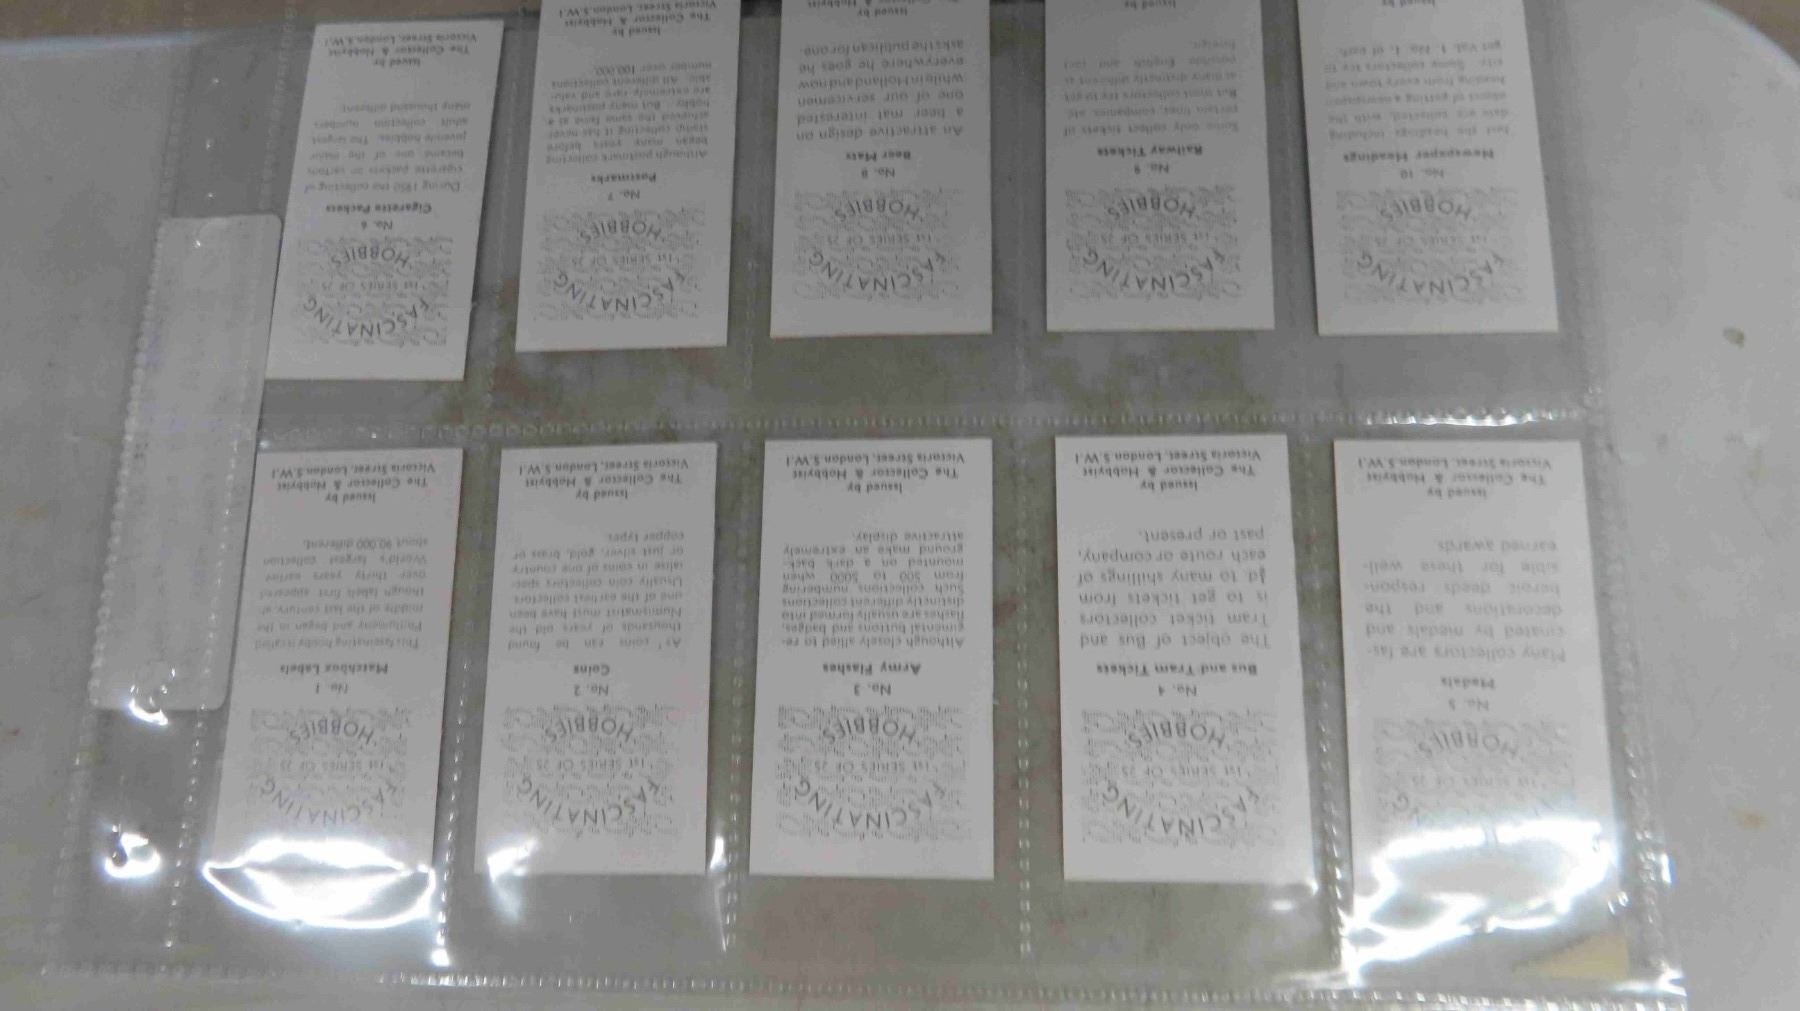 1ST SERIES OF 25
HOBBIES
No. 5
Medals
Many collectors are fas-
cinated by medals and
decorations and the
heroic deeds respon-
sible for these well-
earned awards.
Issued by
The Collector & Hobbyist
Victoria Street, London S.W.1
FASCINATING
1ST SERIES OF 25
HOBBIES
No. 4
Bus and Tram Tickets
The object of Bus and
Tram ticket collectors
is to get tickets from
½d to many shillings of
each route or company,
past or present.
Issued by
The Collector & Hobbyist
Victoria Street, London S.W.1
FASCINATING
1ST SERIES OF 25
HOBBIES
No. 3
Army Flashes
Although closely allied to re-
gimental buttons and badges,
flashes are usually formed into
distinctly different collections
Such collections numbering
from 500 to 5000 when
mounted on a dark back-
ground make an extremely
attractive display.
Issued by
The Collector & Hobbyist
Victoria Street, London S.W.1
FASCINATING
1ST SERIES OF 25
HOBBIES
No. 2
Coins
As coins can be found
thousands of years old the
Numismatist must have been
one of the earliest collectors
Usually coin collectors spec-
ialise in coins of one country
or just silver, gold, brass or
copper types.
Issued by
The Collector & Hobbyist
Victoria Street, London S.W.1
FASCINATING
1ST SERIES OF 25
HOBBIES
No. 1
Matchbox Labels
This fascinating hobby is called
Phillumeny and began in the
middle of the last century, al-
though labels first appeared
over thirty years earlier
World's largest collection
about 90,000 different.
Issued by
The Collector & Hobbyist
Victoria Street, London S.W.1
FASCINATING
1ST SERIES OF 25
HOBBIES
No. 10
Newspaper Headings
Just the headings including
date are collected, with the
object of getting a newspaper
heading from every town and
city. Some collectors try to
get Vol. 1, No. 1, of each.
Issued by
FASCINATING
1ST SERIES OF 25
HOBBIES
No. 9
Railway Tickets
Some only collect tickets of
certain lines, companies etc.
But most collectors try to get
as many distinctly different as
possible English and
foreign.
Issued by
FASCINATING
1ST SERIES OF 25
HOBBIES
No. 8
Beer Mats
An attractive design on
a beer mat interested
one of our servicemen
while in Holland and now
everywhere he goes he
asks the publican for one.
Issued by
The Collector & Hobbyist
FASCINATING
1ST SERIES OF 25
HOBBIES
No. 7
Postmarks
Although postmark collecting
began many years before
stamp collecting it has never
achieved the same fame as a
hobby. But many postmarks
are extremely rare and valu-
able. All different collections
number over 100,000.
Issued by
The Collector & Hobbyist
Victoria Street, London S.W.1
FASCINATING
1ST SERIES OF 25
HOBBIES
No. 6
Cigarette Packets
During 1950 the collecting of
cigarette packets or cartons
became one of the major
juvenile hobbies. The largest
adult collection numbers
many thousand different.
Issued by
The Collector & Hobbyist
Victoria Street, London S.W.1